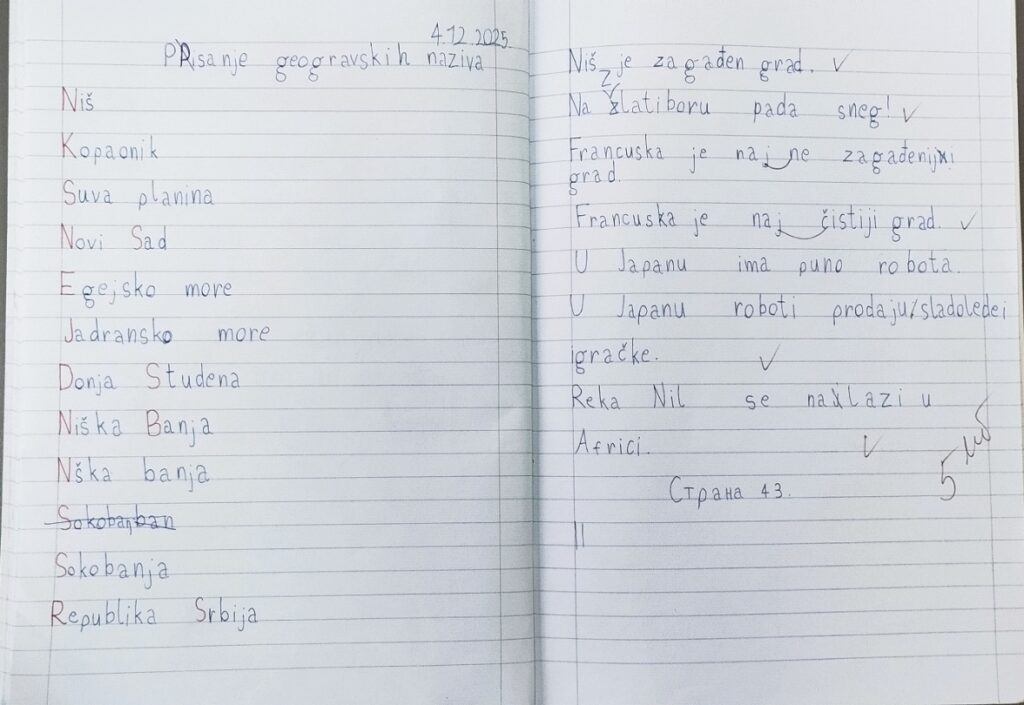 4.12.2025.
Pisanje geogravskih naziva
Niš
Kopaonik
Suva planina
Novi Sad
Egejsko more
Jadransko more
Donja Studena
Niška Banja
Nška banja
Sokobanban
Sokobanja
Republika Srbija
Niš je zagađen grad.
Z
Na Zlatiboru pada sneg!
Francuska je naj ne zagađeniji
grad.
Francuska je naj čistiji grad.
U Japanu ima puno robota.
U Japanu roboti prodaju/sladolede i
igračke.
Reka Nil se nalazi u
Africi.
5
Страна 43.